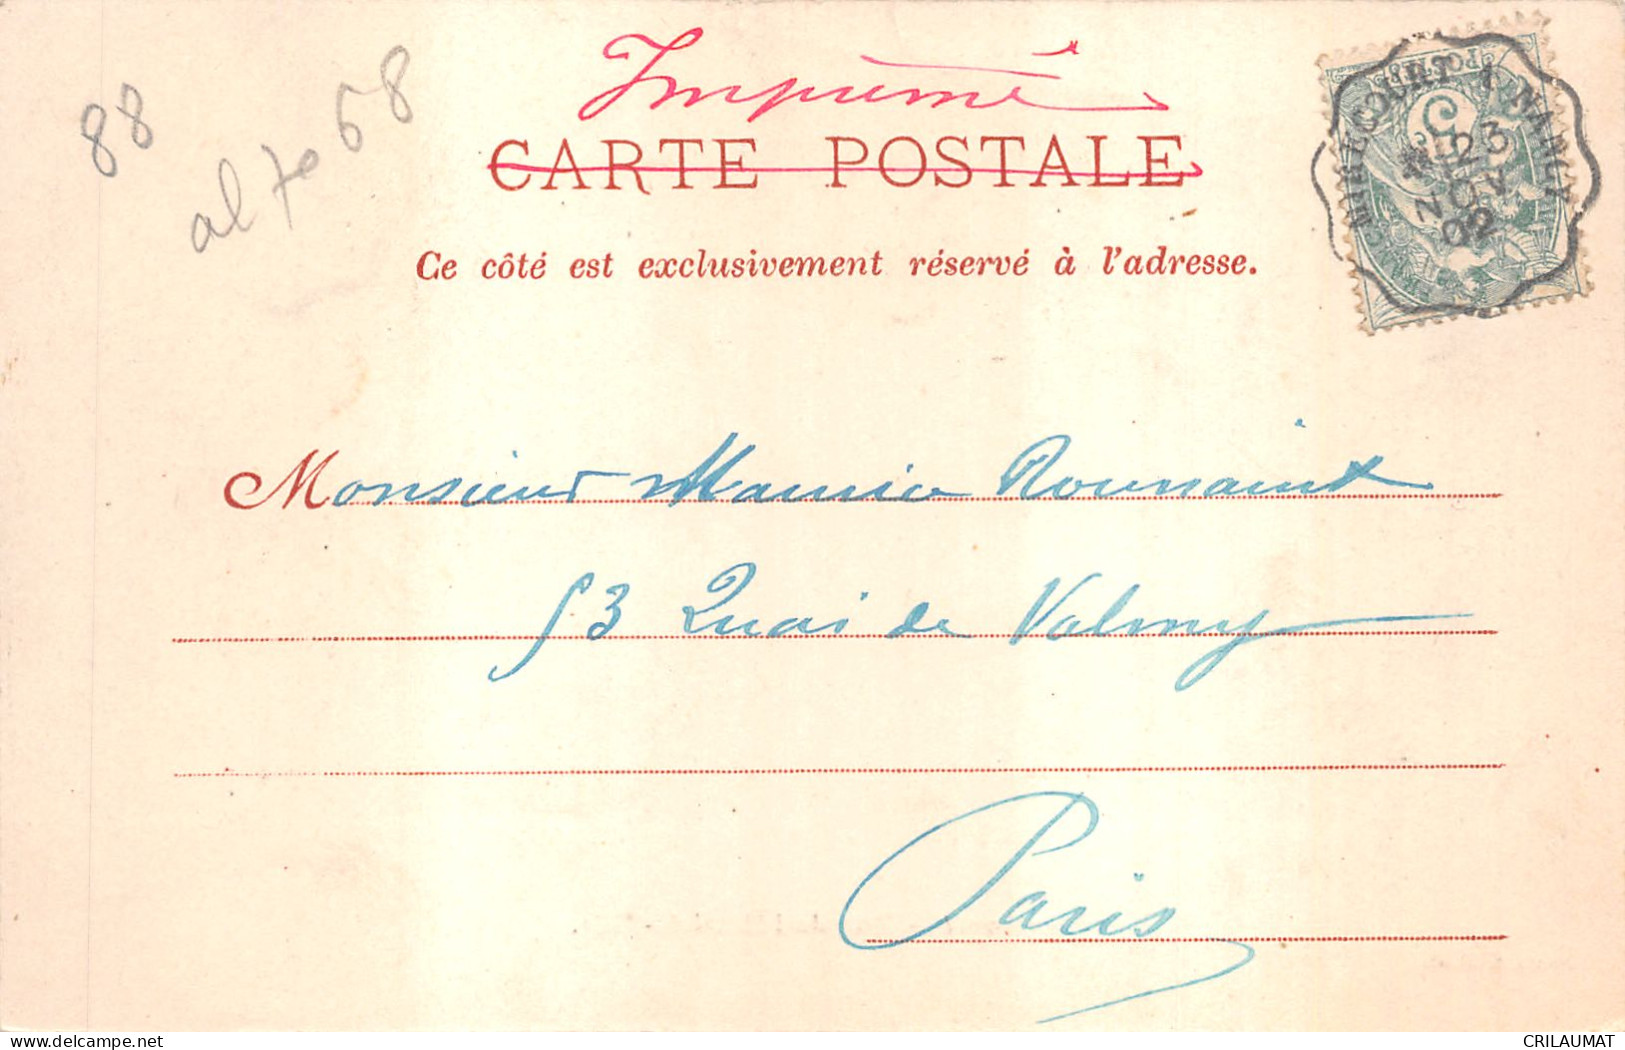 88
al 70 68
Imprimé
CARTE POSTALE
Ce côté est exclusivement réservé à l'adresse.
MIRECOURT À NANCY
23
NOV
02
5
Monsieur Maurice
53 Quai de Valmy
Paris
delcampe.net
CRILAUMAT